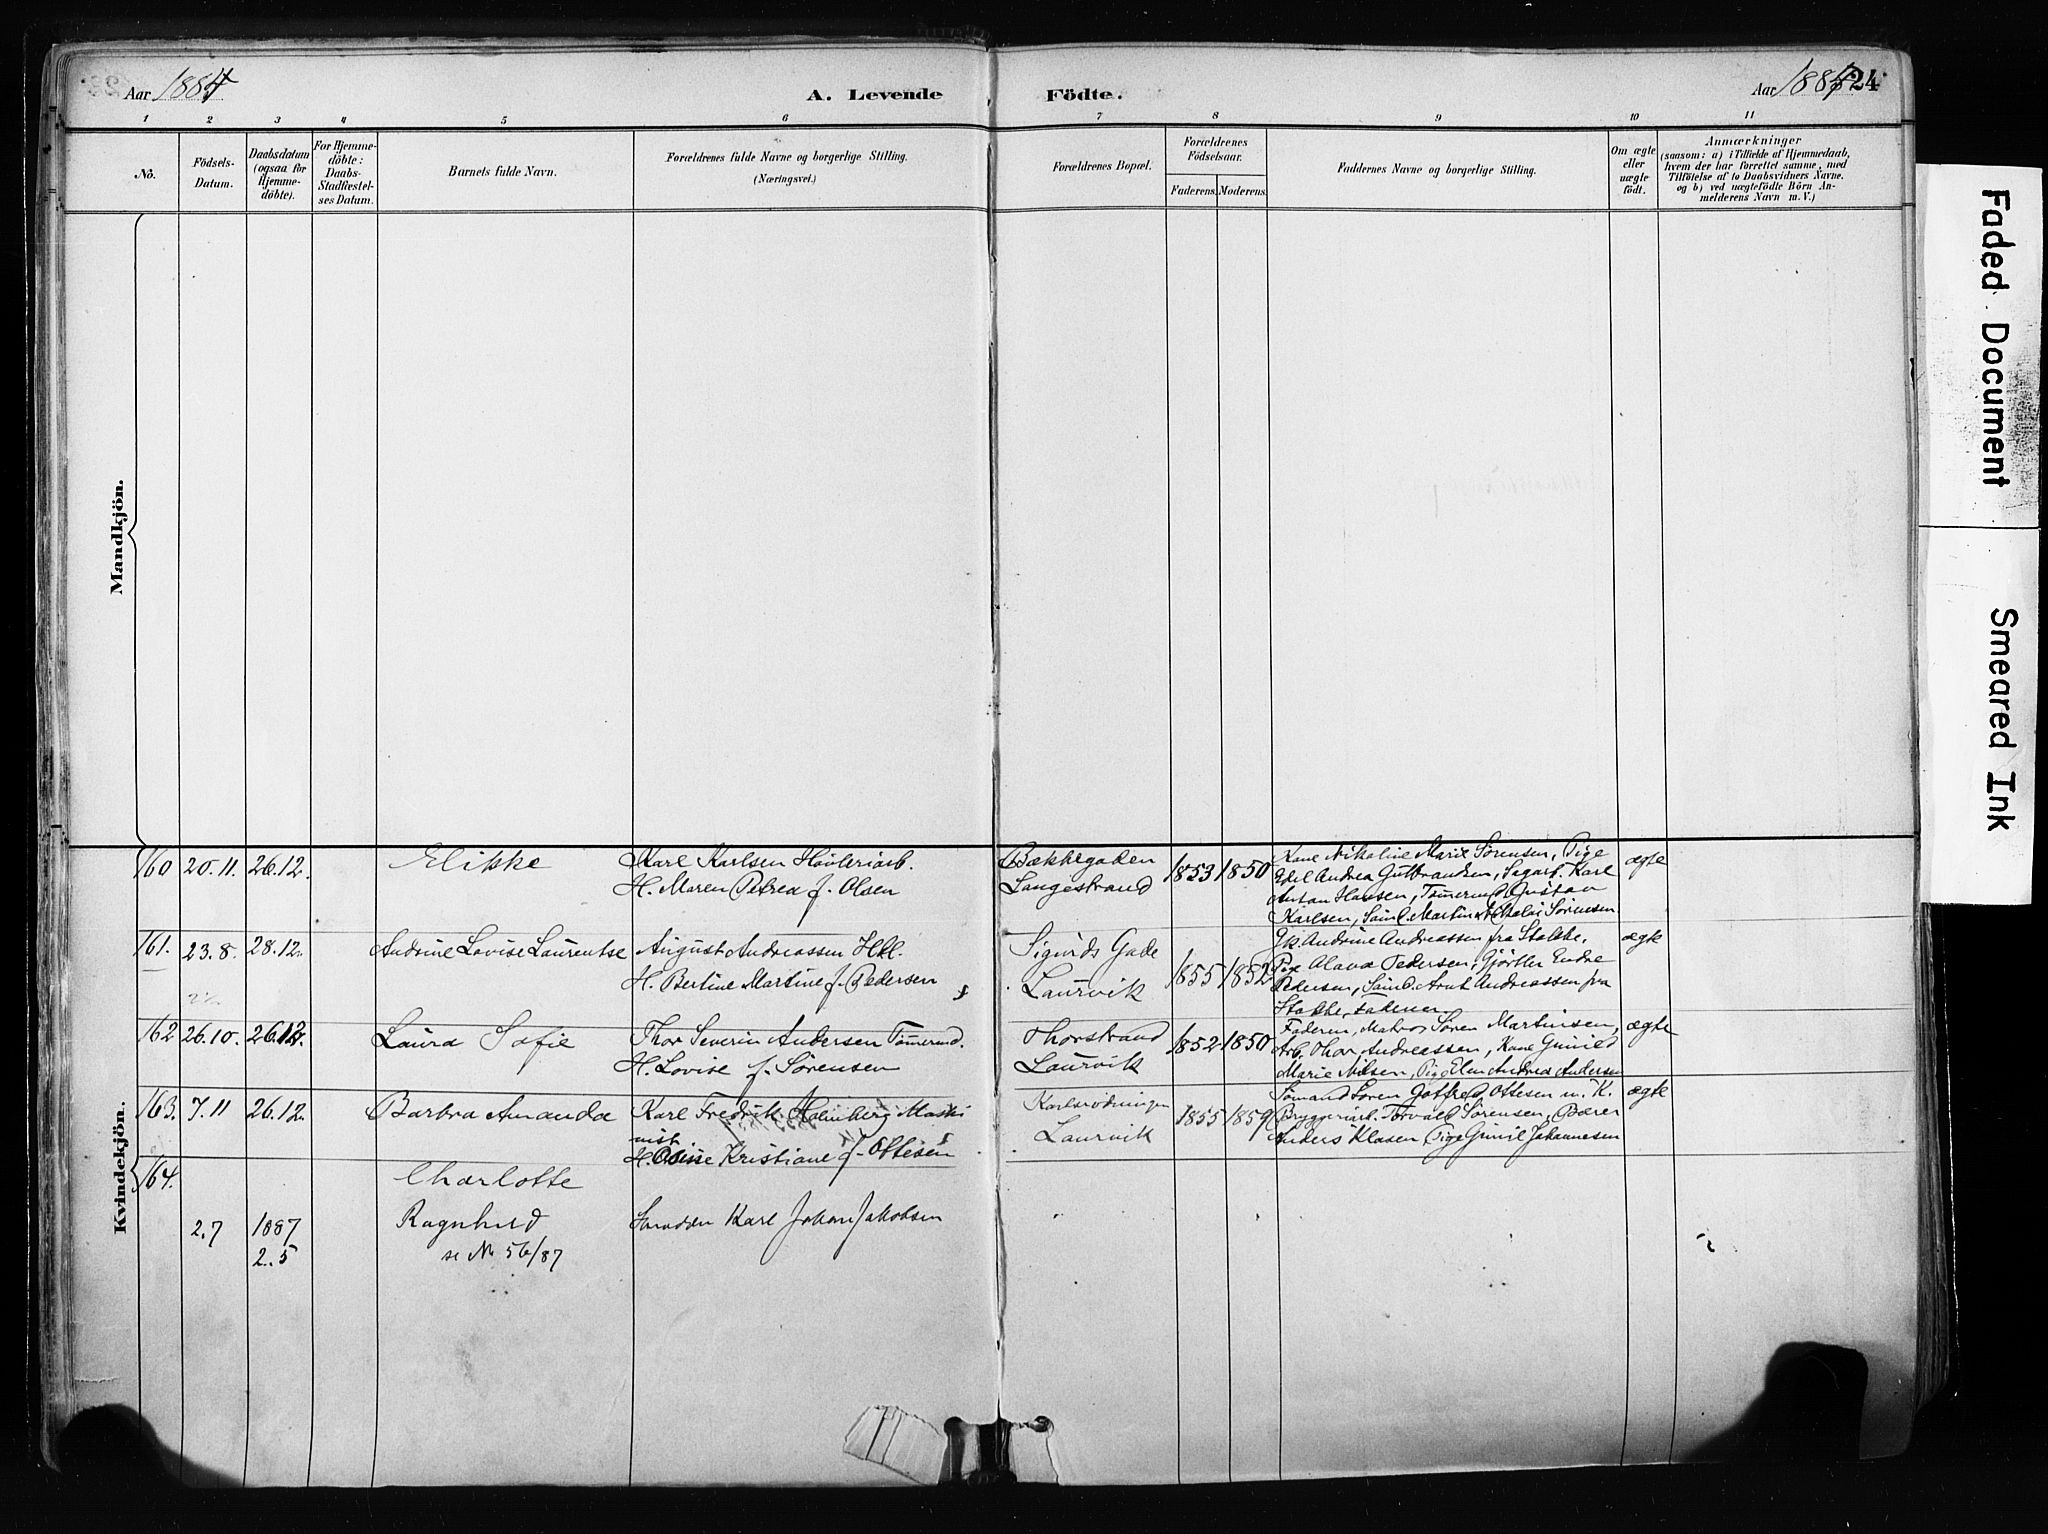 Aar 1884
A. Levende
Födte.
Aar 1884
24
1 2 3 4 5 6 7 8 9 10 11
No.
Födsels-
Datum.
Daabsdatum
(ogsaa for
Hjemme-
döbte).
For Hjemme-
döbte:
Daabs-
Stadfæstel-
ses Datum.
Barnets fulde Navn.
Forældrenes fulde Navne og borgerlige Stilling.
(Næringsvei.)
Forældrenes Bopæl.
Forældrenes
Födselsaar.
Faderens. Moderens.
Faddernes Navne og borgerlige Stilling.
Om ægte
eller
uægte
födt.
Anmærkninger
(saasom: a) i Tilfælde af Hjemmedaab,
hvem der har forrettet samme, med
Tilföielse af to Daabsvidners Navne,
og b) ved uægtefödte Börn An-
melderens Navn m. V.)
Mandkjön.
Kvindekjön.
160 20.11. 26.12. Elikke
Karl Karlsen Høvleriarb.
H. Maren Petrea f. Olsen
Bækkegaden
Langestrand
1853 1850
Kone Nikoline Marie Sørensen, Pige
Edel Andrea Guttransken, Sagarb. Karl
Anton Hansen, Tømermd Gustav
Karlsen, Sømd. Martin Nikolai Sørensen
ægte
161. 23.8. 28.12. Andrine Lovise Laurentse
August Andreassen Hkl.
H. Bertine Martine f. Pedersen
Sigurds Gade
Laurvik
1855 1852
Gk. Andrine Andreassen fra Stokke,
Pige Alava Pedersen, Gjørtler Endre
Pedersen, Sømd. Arnt Andreassen fra
Stokke, Faderen
ægte
162 26.10. 26.12. Laura Sofie
Thor Severin Andersen Tømermd.
H. Lovise f. Sørensen
Thorstrand
Laurvik
1852 1850
Faderen, Matros Søren Martinsen,
Arb. Thor Andreassen, Kone Gunild
Marie Nilsen, Pige Elen Andrea Andersen
ægte
163. 7.11 26.12. Barbra Amanda
Karl Fredrik Holmberg Maski
nist
H. Kristiane f. Ottesen
Karlsrødningen
Laurvik
1855 1859
Sømand Søren Gotfred Ottesen m. K.
Bryggeriarb. Torvald Sørensen, Bærer
Anders Klasen Pige Gunil Johannesen
ægte
164. 2.7 1887
2.5
Charlotte
Ragnhild
se No 56/87
Smeden Karl Johan Jakobsen
Faded Document
Smeared Ink